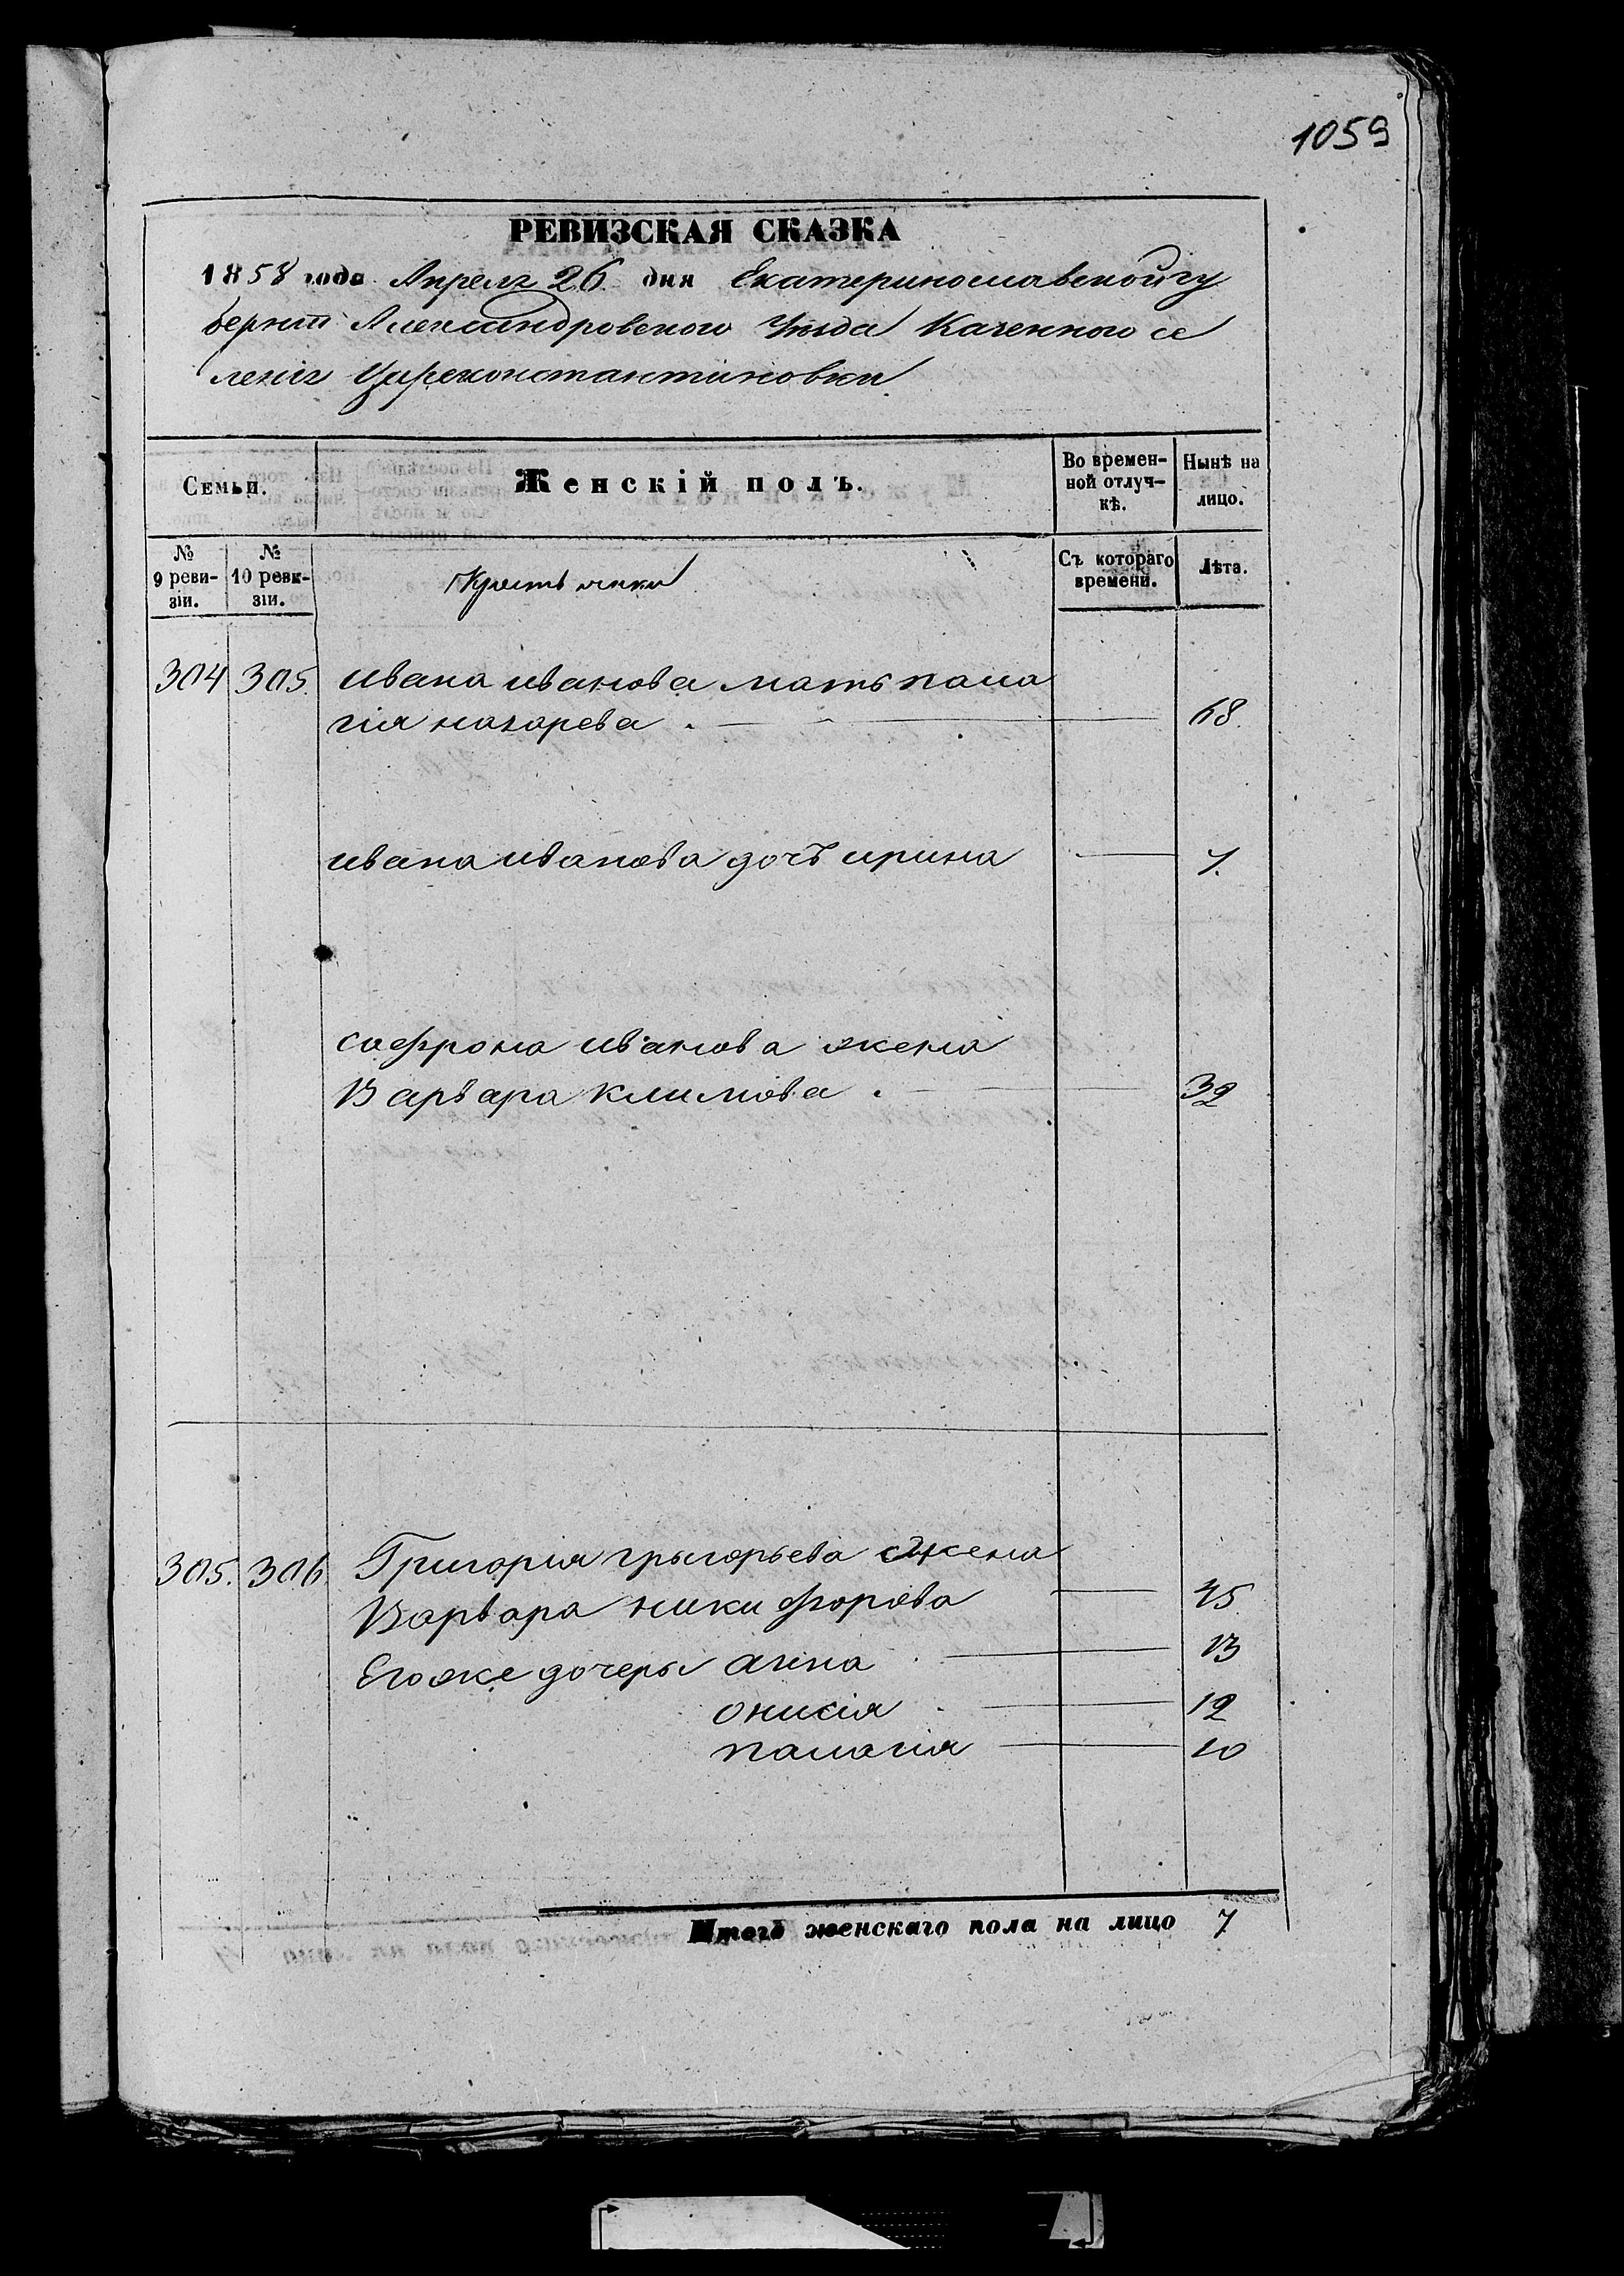 1059
РЕВИЗСКАЯ СКАЗКА
1858 года Апреля 26 дня Екатеринославской гу
берніи Александровского Уѣзда Казенного се
ленія Цареконстантиновки
Семьи. Женскій полъ. Во времен- Нынѣ на
ной отлуч- лицо.
кѣ.
№ № Съ котораго Лѣта.
9 реви- 10 реви- времени.
зіи. зіи.
Крестьянки
304 305. ивана иванова мать пала
гія назарева. 68.
ивана иванова дочъ ирина 1.
софрона иванова жена
Варвара климова. 32
305. 306. Григорія грыгорьева жена
Варвара никифорова 45
Егоже дочеры анна 13
онисія 12
палагія 10
Итого женскаго пола на лицо 7